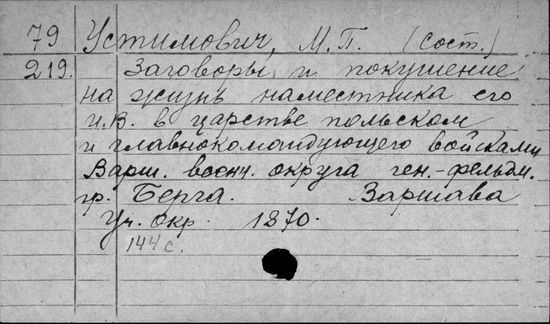 79 Устимович, М.П. (сост.)
219. Заговоры и покушение
на жизнь наместника его
и.в. в царстве польском
и главнокомандующего войсками
Варш. военн. округа ген.-фельдм.
гр. Берга. Варшава
Уч. окр. 1870.
144 с.